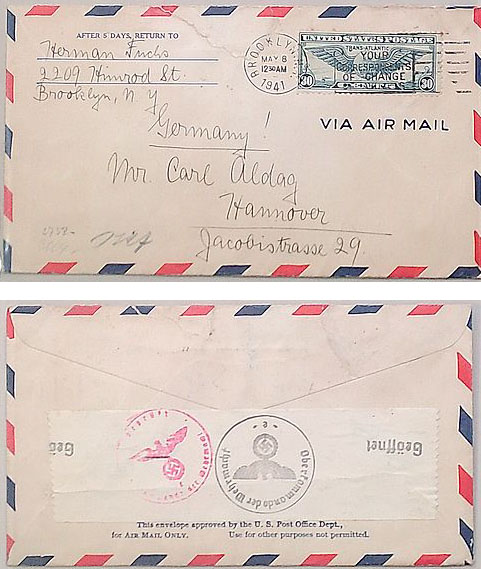 AFTER 5 DAYS, RETURN TO
Herman Fuchs
2209 Himrod St.
Brooklyn, N. Y.
BROOKLYN
MAY 8
12 30 AM
1941
UNITED STATES POSTAGE
TRANS-ATLANTIC
YOUR
CORRESPONDENTS
OF CHANGE
30 30
VIA AIR MAIL
Germany!
Mr. Carl Aldag
Hannover
Jacobistrasse 29.
Geöffnet
Oberkommando der Wehrmacht
- e -
Geöffnet
This envelope approved by the U. S. Post Office Dept.,
for AIR MAIL ONLY. Use for other purposes not permitted.